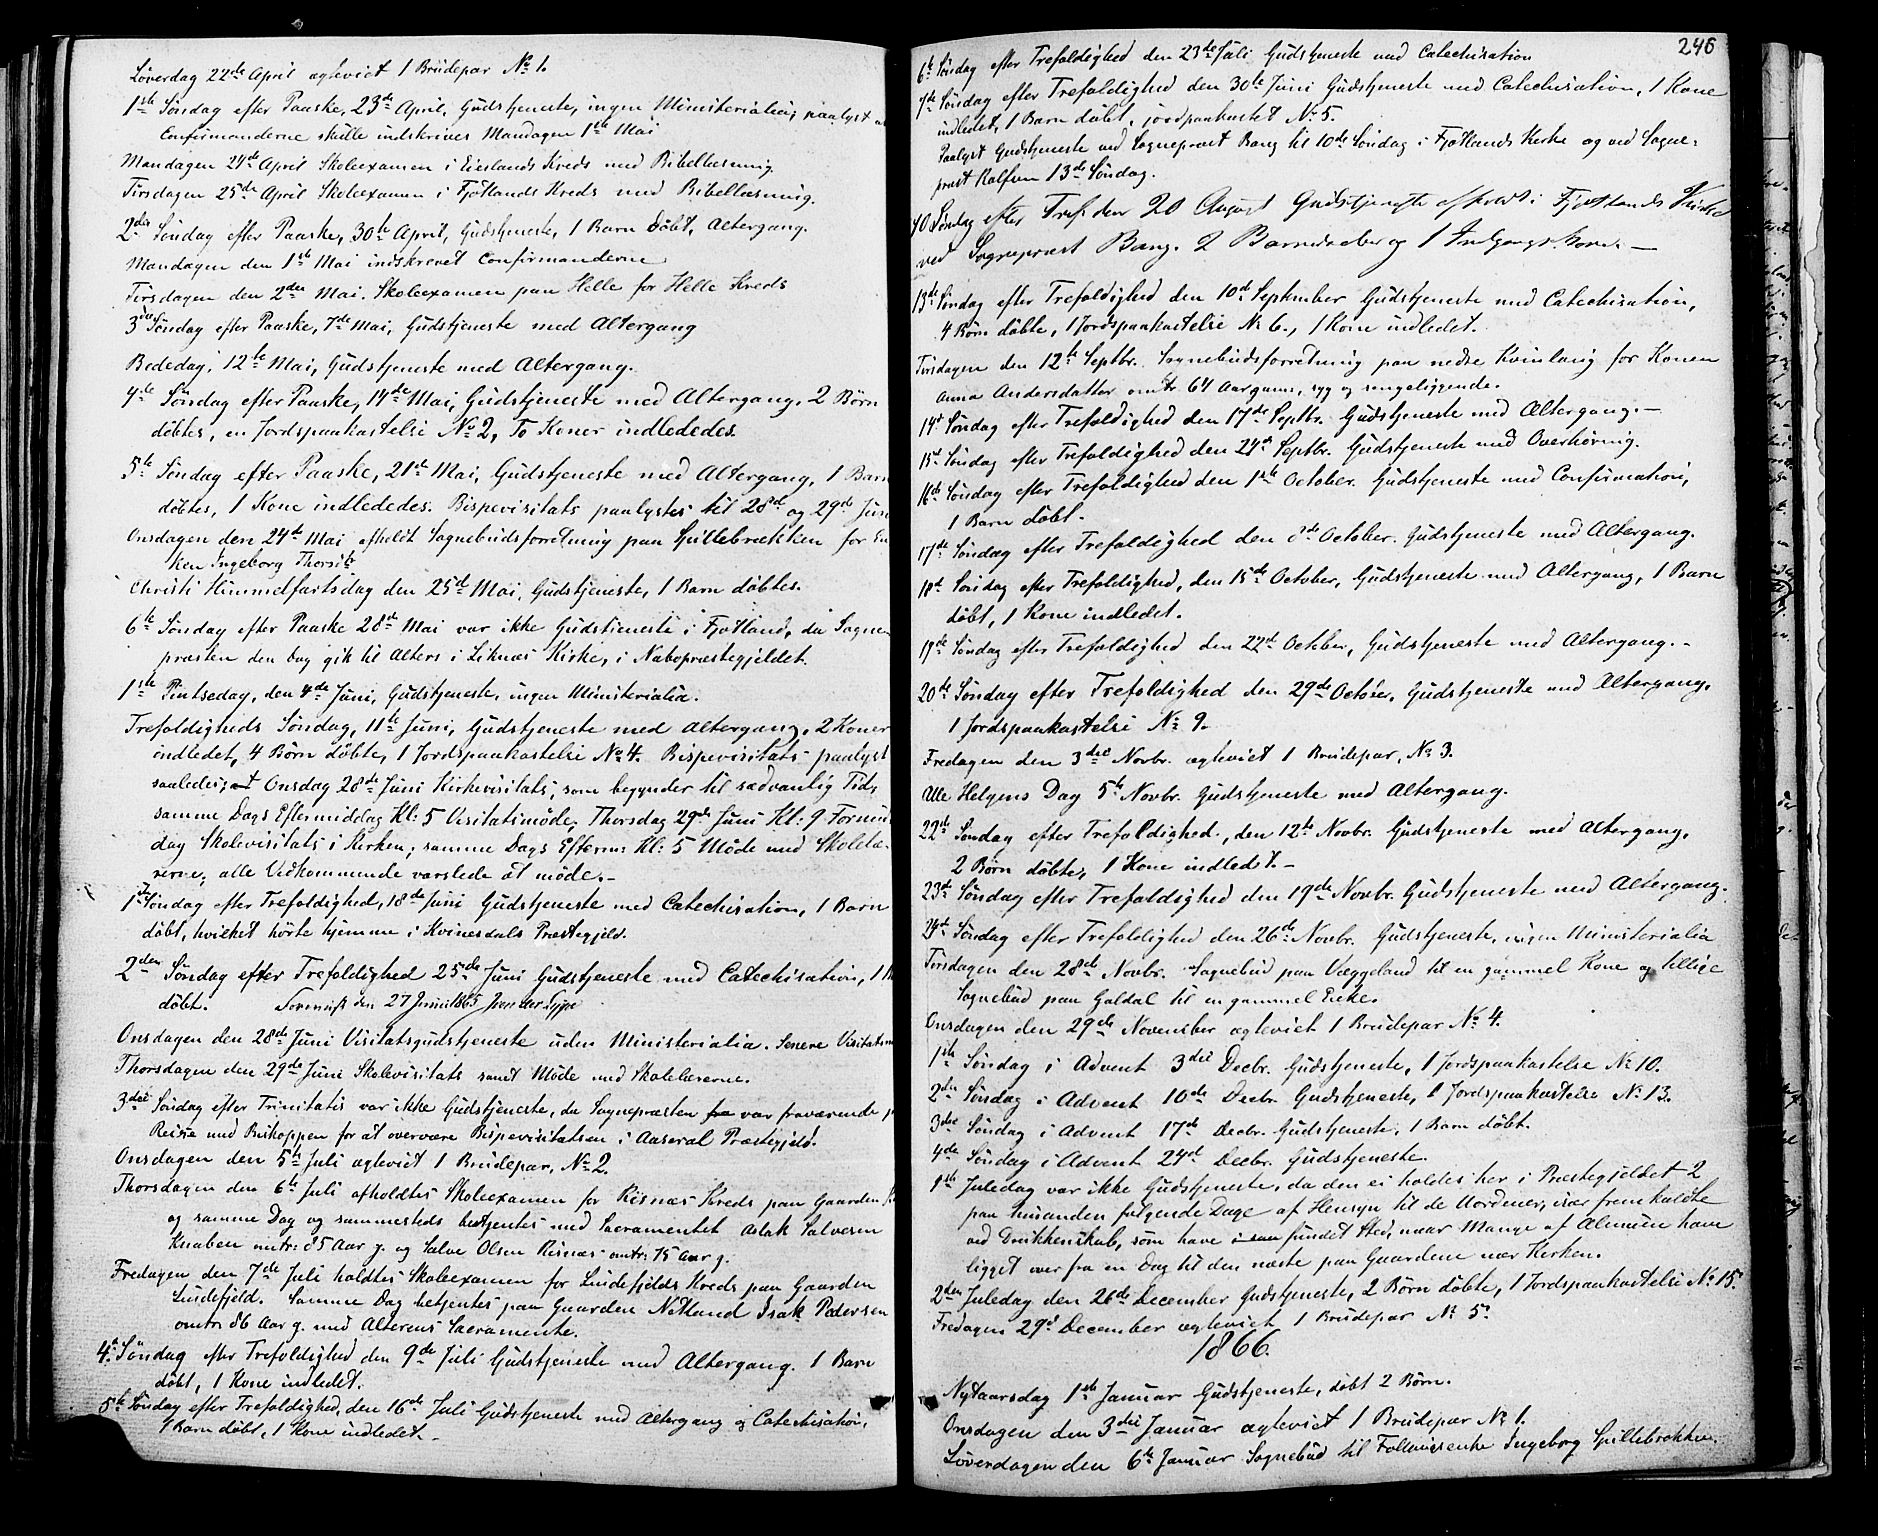 Löverdag 22de April ægteviet 1 Brüdepar No 1.
1ste Söndag efter Paaske, 23de April, Gudstjeneste, ingen Ministerialia; paalyst at
Confirmanderne skulle indskrives Mandagen 1ste Mai
Mandagen 24de April Skoleexamen i Eieslands Kreds med Bibellæsning.
Tirsdagen 25de April Skoleexamen i Fjotlands Kreds med Bibellæsning.
2den Söndag efter Paaske, 30te April, Gudstjeneste, 1 Barn döbt, Altergang.
Mandagen den 1ste Mai indskrevet Confirmanderne
Tirsdagen den 2den Mai. Skoleexamen paa Helle for Helle Kreds
3die Söndag efter Paaske, 7de Mai, Gudstjeneste med Altergang
Bededag, 12te Mai, Gudstjeneste med Altergang.
4de Söndag efter Paaske, 14de Mai, Gudstjeneste med Altergang, 2 Börn
döbtes, en Jordspaakastelse No 2, To Koner indlededes.
5te Söndag efter Paaske, 21de Mai, Gudstjeneste med Altergang, 1 Barn
döbtes, 1 Kone indlededes. Bispevisitats paalystes til 28de og 29de Juni
Onsdagen den 24de Mai afholdt Sognebudsforretning paa Spillebrækken for En
ken Ingeborg Thorsdt
Christi Himmelfartsdag den 25de Mai, Gudstjeneste, 1 Barn döbtes.
6te Söndag efter Paaske 28de Mai var ikke Gudstjeneste i Fjotland, da Sogne-
præsten den Dag gik til Alters i Liknæs Kirke, i Nabopræstegjeldet.
1ste Pintsedag, den 4de Juni, Gudstjeneste, ingen Ministerialia.
Trefoldigheds Söndag, 11te Juni, Gudstjeneste med Altergang, 2 Koner
indledet, 4 Börn döbte, 1 Jordspaakastelse No 4. Bispevisitats paalyst
saaledes; Onsdag 28de Juni Kirkevisitats, som begynder til sædvanlig Tid,
samme Dags Eftermiddag Kl: 5 Visitatsmöde; Thorsdag 29de Juni Kl: 9 Formid
dag Skolevisitats i Kirken; samme Dags Efterm: Kl: 5 Möde med Skolelæ-
rerne; alle Vedkommende varslede at möde.-
1ste Söndag efter Trefoldighed, 18de Juni Gudstjeneste med Catechisation, 1 Barn
döbt, hvilket hörte hjemme i Kvinesdals Præstegjeld.
2den Söndag efter Trefoldighed 25de Juni Gudstjeneste med Catechisation, 1
döbt. den 27 Juni 1865
Onsdagen den 28de Juni Visitatsgudstjeneste uden Ministerialia. Senere Visitats
Thorsdagen den 29de Juni Skolevisitats samt Möde med Skolelærerne.
3die Söndag efter Trinitatis var ikke Gudstjeneste, da Sognepræsten var fraværende
Reise med Biskoppen for at overvære Bispevisitatsen i Aaseral Præstegjeld.
Onsdagen den 5te Juli ægteviet 1 Brudepar, No 2.
Thorsdagen den 6te Juli afholdtes Skoleexamen for Risnæs Kreds paa Gaarden
og samme Dag og sammesteds betjentes med Sacramentet Aslak Salvesen
Knaben omtr: 85 Aar g. og Salve Olsen Risnæs omtr: 75 Aar g.
Fredagen den 7de Juli holdtes Skoleexamen for Lindefjelds Kreds paa Gaarden
Lindefjeld. Samme Dag betjentes paa Gaarden Netland Isak Pedersen
omtr. 86 Aar g. med Alterens Sacramente.
4de Söndag efter Trefoldighed den 9de Juli Gudstjeneste med Altergang. 1 Barn
döbt, 1 Kone indledet.
5te Söndag efter Trefoldighed, den 16de Juli Gudstjeneste med Altergang og Catechisation,
1 Barn döbt, 1 Kone indledet.-
246
6te Söndag efter Trefoldighed den 23de Juli Gudstjeneste med Catechisation
7de Söndag efter Trefoldighed den 30te Juni Gudstjeneste med Catechisation, 1 Kone
indledet, 1 Barn döbt, jordpaakastet No 5.
Paalyst Gudstjeneste ved Sognepræst Bang til 10de Söndag i Fjotlands Kirke og ved Sogne-
præst Kalfsen 13de Söndag.
10 Söndag efter Tref. den 20 August Gudstjeneste afholdt i Fjotlands Kirke
ved Sognepræst Bang. 2 Barnedaab og 1 Indgangskone. —
13de Söndag efter Trefoldighed den 10de September Gudstjeneste med Catechisation,
4 Börn döbte, 1 Jordspaakastelse No 6., 1 Kone indledet.
Tirsdagen den 12te Septbr. Sognebudsforretning paa nedre Kvinlaug for Konen
Anna Andersdatter omtr 64 Aar gamm., syg og sengeliggende.
14de Söndag efter Trefoldighed den 17de Septbr. Gudstjeneste med Altergang.—
15de Söndag efter Trefoldighed den 24de Septbr. Gudstjeneste med Overhörning.
16de Söndag efter Trefoldighed den 1ste October. Gudstjeneste med Confirmation,
1 Barn döbt.
17de Söndag efter Trefoldighed den 8de October. Gudstjeneste med Altergang.
18de Söndag efter Trefoldighed, den 15de October, Gudstjeneste med Altergang, 1 Barn
döbt, 1 Kone indledet.
19de Söndag efter Trefoldighed den 22de October, Gudstjeneste med Altergang.-
20de Söndag efter Trefoldighed den 29de October, Gudstjeneste med Altergang,
1 Jordspaakastelse No 9.
Fredagen den 3die Novbr. ægteviet 1 Brudepar, No 3.
Alle Helgens Dag 5te Novbr. Gudstjeneste med Altergang.
22de Söndag efter Trefoldighed, den 12te Novbr. Gudstjeneste med Altergang,
2 Börn döbte, 1 Kone indledet.-
23de Söndag efter Trefoldighed den 19de Novbr. Gudstjeneste med Altergang.
24de Söndag efter Trefoldighed den 26de Novbr. Gudstjeneste, ingen Ministerialia
Tirsdagen den 28de Novbr. Sognebud paa Væggeland til en gammel Kone og tillige
Sognebud paa Galdal til en gammel Enke.
Onsdagen den 29de November ægteviet 1 Brudepar No 4.
1ste Söndag i Advent 3die Decbr. Gudstjeneste, 1 Jordspaakastelse No 10.
2den Söndag i Advent 10de Decbr. Gudstjeneste, 1 Jordspaakastelse No 13.
3die Söndag i Advent 17de Decbr. Gudstjeneste, 1 Barn döbt.
4de Söndag i Advent 24de Decbr. Gudstjeneste.
1ste Juledag var ikke Gudstjeneste, da den ei holdes her i Præstegjeldet 2
paa hinanden fulgende Dage af Hensyn til de Uordener, især fremkaldte
ved Drukkenskab, som have fundet Sted, naar Mange af Almuen have
ligget over fra en Dag til den næste paa Gaardene nær Kirken.
2den Juledag den 26de December Gudstjeneste, 2 Börn döbte, 1 Jordspaakastelse No 15.
Fredagen 29de December ægteviet 1 Brudepar No 5.
1866.
Nytaarsdag 1ste Januar Gudstjeneste, döbt 2 Börn.
Onsdagen den 3die Januar ægteviet 1 Brudepar No 1.
Löverdagen den 6te Januar Sognebud til Ingeborg Spillebrækken.